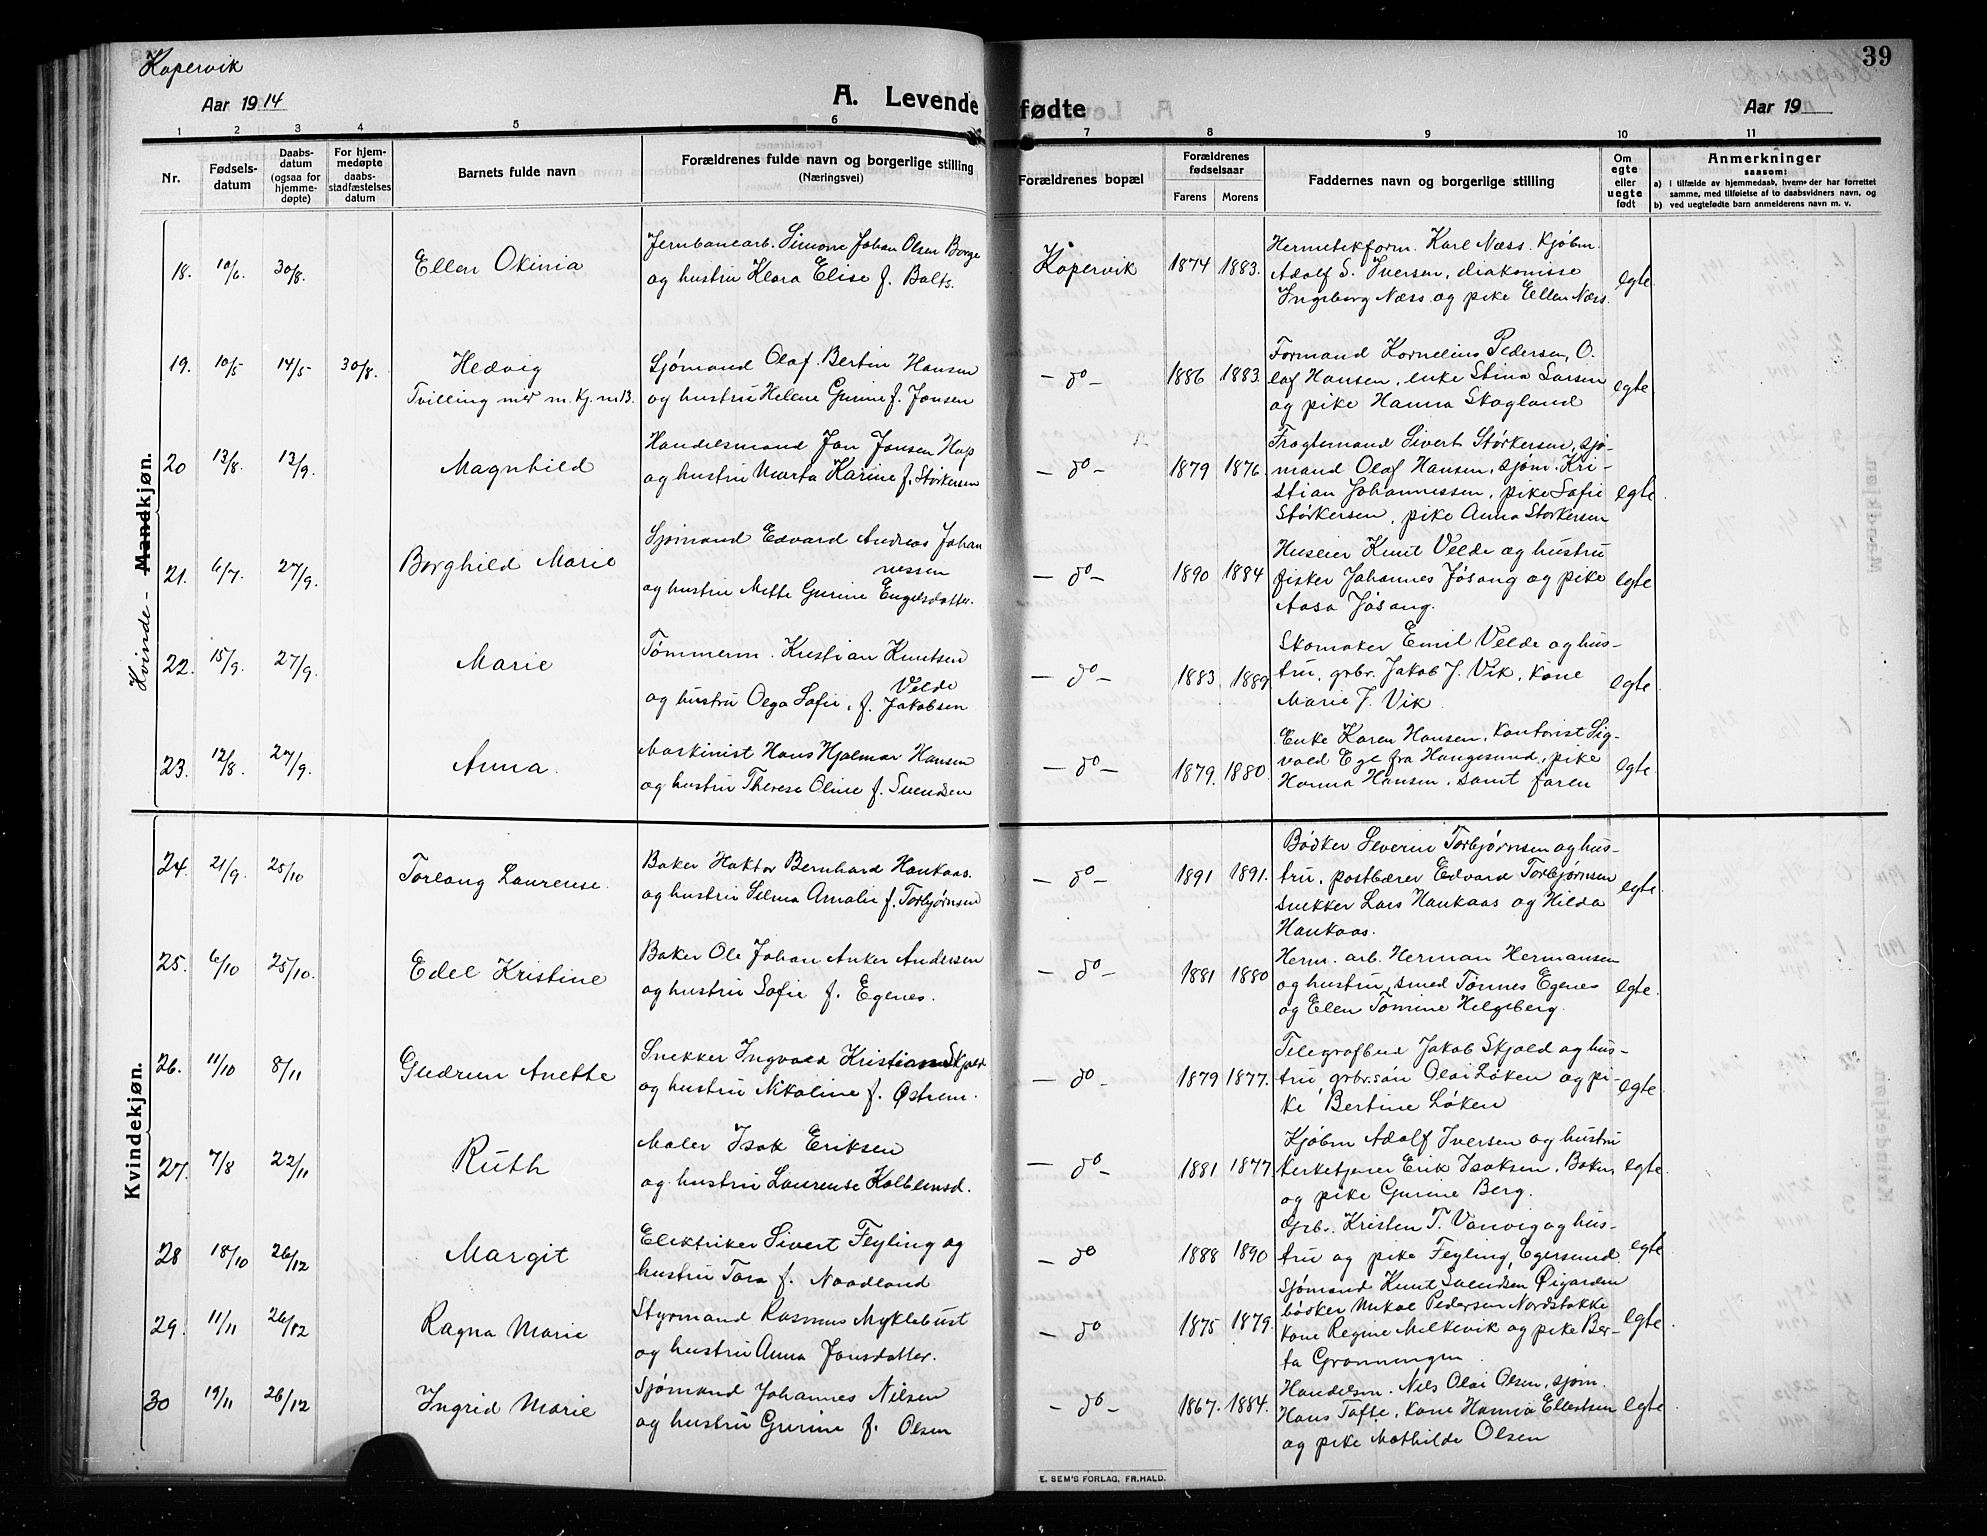 Kopervik
39
Aar 1914
A. Levende fødte
Aar 19
1 2 3 4 5 6 7 8 9 10 11
Nr.
Fødsels-
datum
Daabs-
datum
(ogsaa for
hjemme-
døpte)
For hjem-
medøpte
daabs-
stadfæstelses
datum
Barnets fulde navn
Forældrenes fulde navn og borgerlige stilling
(Næringsvei)
Forældrenes bopæl
Forældrenes
fødselsaar
Farens Morens
Faddernes navn og borgerlige stilling
Om
egte
eller
uegte
født
Anmerkninger
saasom:
a) i tilfælde av hjemmedaab, hvem der har forrettet
samme, med tilføielse af to daabsvidners navn, og
b) ved uegtefødte barn anmelderens navn m. v.
Hvinde - Mandkjøn.
18. 10/6. 30/8. Ellen Okinia
Jernbanearb. Simone Johan Olsen Borge
og hustru Klara Elise f. Balts.
Kopervik 1874 1883.
Hermetikform. Karl Næss. Kjøbm.
Adolf S. Iversen, diakonisse
Ingeborg Næss og pike Ellen Næss.
egte
19. 10/5- 14/5- 30/8. Hedvig
Tvilling med m. Kj. nr 13.
Sjømand Olaf Bertin Hansen
og hustru Helene Gurine f. Jonsen
- do - 1886 1883.
Formand Kornelius Pedersen, O.
laf Hansen, enke Stina Larsen
og pike Hanna Skogland
egte.
20 13/8. 13/9. Magnhild
Handelsmand Jon Jonsen Hop
og hustru Marta Karine f. Størkersen
- do - 1879 1876.
Fragtemand Sivert Størkersen, sjø-
mand Olaf Hansen, sjøm. Kri-
stian Johannessen, pike Sofie
Størkersen, pike Anna Størkersen
egte.
21. 6/7. 27/9. Borghild Marie
Sjømand Edvard Andreas Johan
nessen
og hustru Mette Gurine Engelsdatter.
- do - 1890 1884
Huseier Knut Velde og hustru
fisker Johannes Jøsang og pike
Aasa Jøsang.
egte
22. 15/9. 27/9. Marie
Tømmerm. Kristian Knutsen
Velde
og hustru Olga Sofie, f. Jakobsen
- do - 1883 1889
Skomaker Emil Velde og hus-
tru, grbr. Jakob J. Vik, kone
Marie J. Vik.
egte.
23. 12/8. 27/9. Anna.
Maskinist Hans Hjalmar Hansen
og hustru Therese Oline f. Svendsen
- do - 1879. 1880.
Enke Karen Hansen, kontorist Sig-
vald Ege fra Haugesund, pike
Hanna Hansen, samt faren
egte.
Kvindekjøn.
24. 21/9. 25/10 Torlaug Laurense.
Baker Haktor Bernhard Haukaas.
og hustru Selma Amalie f. Torbjørnsen
- do - 1891 1891.
Bødker Severin Torbjørnsen og hus-
tru, postbærer Edvard Torbjørnsen
snekker Lars Haukaas og Hilda
Haukaas.
egte.
25. 6/10 25/10. Edel Kristine
Baker Ole Johan Anker Andersen
og hustru Sofie f. Egenes.
- do - 1881 1880
Herm. arb. Herman Hermansen
og hustru, smed Tønnes Egenes
og Elen Tomine Helgeberg.
egte.
26. 11/10 8/11 Gudrun Anette
Snekker Ingvald Kristian Skjold
og hustru Nikoline f. Østrem.
- do - 1879 1877.
Telegrafbud Jakob Skjold og hus-
tru, grbr.søn Olai Løken og pi-
ke Bertine Løken
egte.
27. 7/8 22/11 Ruth
Maler Isak Eriksen
og hustru Laurense Kolbensd.
- do - 1881 1877.
Kjøbm Adolf Iversen og hustru
kirketjener Erik Isaksen, Boken
og pike Gurine Berg.
egte.
28 18/10 26/12 Margit
Elektriker Sivert Feyling og
hustru Tora f. Naadland
- do 1888 1890
Grb. Kristen T. Vanvig og hus-
tru og pike Feyling, Egersund
egte
29. 11/11 26/12 Ragna Marie
Styrmand Rasmus Myklebust
og hustru Anna Jonsdatter.
- do 1875 1879.
Sjømand Knut Svendsen Øigarden
bødker Mikal Pedersen Nordstokke
kone Regine Melkevik og pike Ber-
ta Grønningen
egte
30 19/11 26/12 Ingrid Marie
Sjømand Johannes Nilsen
og hustru Gurine f. Olsen
- do - 1867. 1884.
Handelsm. Nils Olai Olsen, sjøm.
Hans Tofte, kone Hanna Ellertsen
og pike Mathilde Olsen
egte
E. SEM'S FORLAG, FR.HALD.